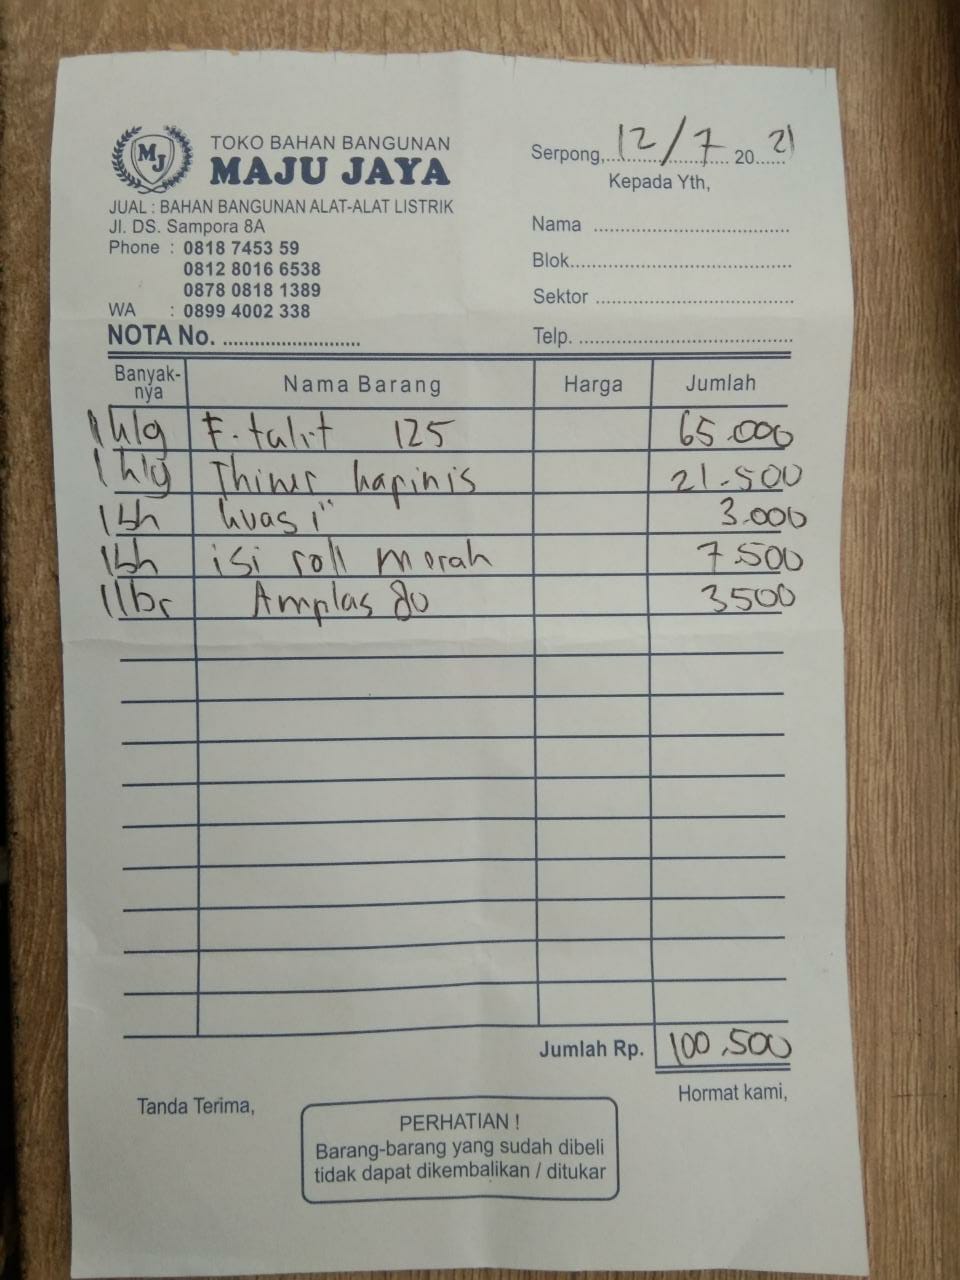 MJ
TOKO BAHAN BANGUNAN
MAJU JAYA
JUAL : BAHAN BANGUNAN ALAT-ALAT LISTRIK
Jl. DS. Sampora 8A
Phone : 0818 7453 59
0812 8016 6538
0878 0818 1389
WA : 0899 4002 338
NOTA No. ..........................
Serpong, 12/7 2021
Kepada Yth,
Nama ....................................
Blok.........................................
Sektor ....................................
Telp. .......................................
Banyak-nya Nama Barang Harga Jumlah
1 klg F.talit 125 65.000
1 klg Thiner hapinis 21.500
1bh kuas 1" 3.000
1bh isi roll merah 7.500
1lbr Amplas 80 3500
Jumlah Rp. 100.500
Tanda Terima,
Hormat kami,
PERHATIAN !
Barang-barang yang sudah dibeli
tidak dapat dikembalikan / ditukar